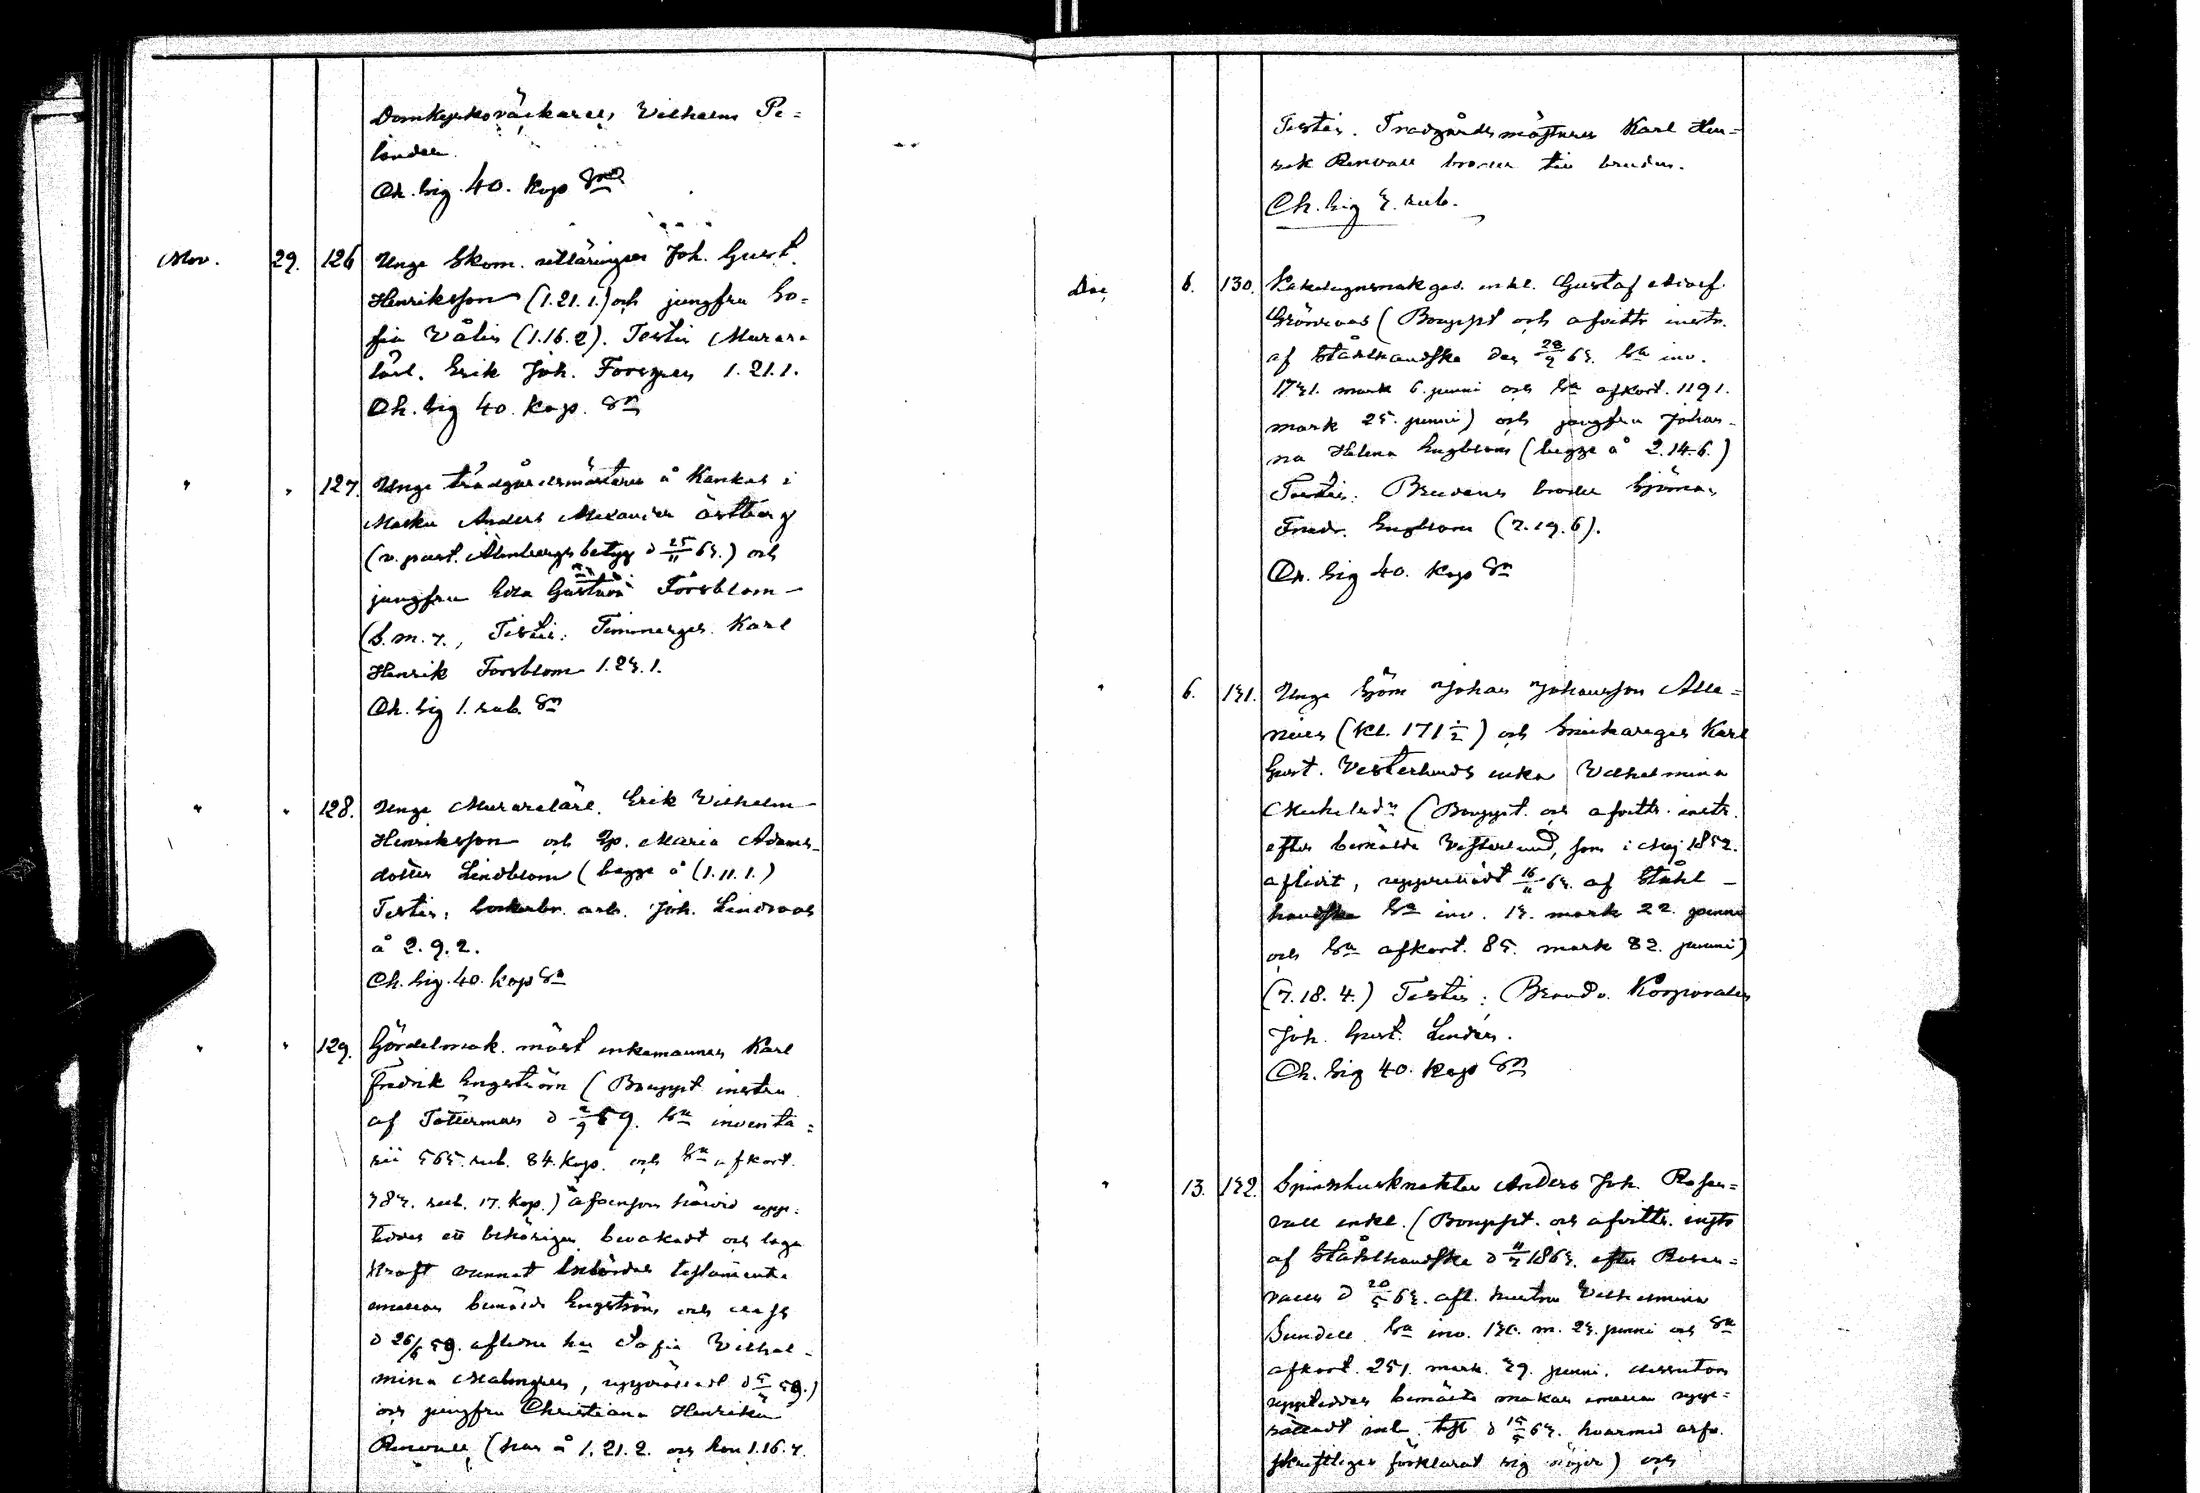 Domkyrkoväckaren Wilhelm Pe=
lander.
Ch. sig. 40. kop Sr
Nov. 29. 126 Unge Skom. utläringen Joh. Gust.
Henriksson (1.21.1.) och jungfru So=
fia Wålin (1.16.2). Testis Murare
lärl. Erik Joh. Forsgren 1.21.1.
Ch. sig 40. kop. Sr
" " 127. Unge trädgårdsmästaren å Kankas i
Masku Anders Alexander Östberg
(v. past. Almbergs betyg d 25/11 63.) och
jungfru Eva Gustava Forsblom
(b.m.7., Testis: Timmerges. Karl
Henrik Forsblom 1.23.1.
Ch. sig 1. rub. Sr
" " 128. Unge Murarelärl. Erik Wilhelm
Henriksson och Jp. Maria Adams-
dotter Lindblom (begge å (1.11.1.)
Testis: Sockerbr. arb. Joh. Lindroos
å 2.9.2.
Ch. sig. 40. kop Sr
" " 129. Gördelmak. mäst enkemannen Karl
Fredrik Engström (Bouppt. instru
af Tötterman d 2/9 59. Sa inventa=
rii 565. rub. 84. kop. och Sa afkort.
383. rub. 17. kop.) äfvensom härvid upp=
teddes ett behörigen bevakadt och laga
kraft vunnet inbördes testamente
emellan bemälde Engström och dess
d 26/6 59. aflidna hu Sofia Wilhel-
mina Malmgren, upprättadt d 5/4 59.)
och jungfru Christiana Henrika
Renvall (han å 1.21.2. och hon 1.16.4.
Testis. Trädgårdsmästaren Karl Hen=
rik Renvall broder till bruden.
Ch. sig 3. rub.
Dec. 6. 130. Kakelugnsmak. ges. enkl. Gustaf Adolf
Grönroos (Bouppt och afvittr. instr.
af Stålhandske den 28/9 63. Sa inv.
1731. mark 6. penni och Sa afkort. 1191.
mark 25. penni) och jungfru Johan-
na Helena Engblom (begge å 2.14.6.)
Testis: Brudens broder Sjöman
Fredr. Engblom (7.19.6).
Ch. sig 40. kop Sr
" 6. 131. Unge Sjöm Johan Johansson Ale=
nius (Kl. 171 1/2) och Snickareges Karl
Gust. Vesterlunds enka Wilhelmina
Mickelsdr (Bouppt. och afvittr. instr.
efter bemälde Vesterlund, som i Maj 1852.
aflidit, upprättadt 16/11 63. af Stål-
handske Sa inv. 13. mark 22. penni
och Sa afkort. 85. mark 82. penni)
(7.18.4.) Testis: Brandv. Korporalen
Joh. Gust. Lindén.
Ch. sig 40. kop Sr
" 13. 132. Spinnhusknekten Anders Joh. Rosen=
vall enkl. (Bouppt. och afvittr. instr
af Stålhandske d 11/7 1863. efter Rosen=
valls d 20/5 63. afl. hustru Wilhelmina
Sundell Sa inv. 130. m. 23. penni och Sa
afkort. 251. mark. 39. penni. dessutom
uppteddes bemälte makar emellan upp=
rättadt inb. test d 15/5 63. hvarmed arfv.
skriftligen förklarat sig nöjde) och